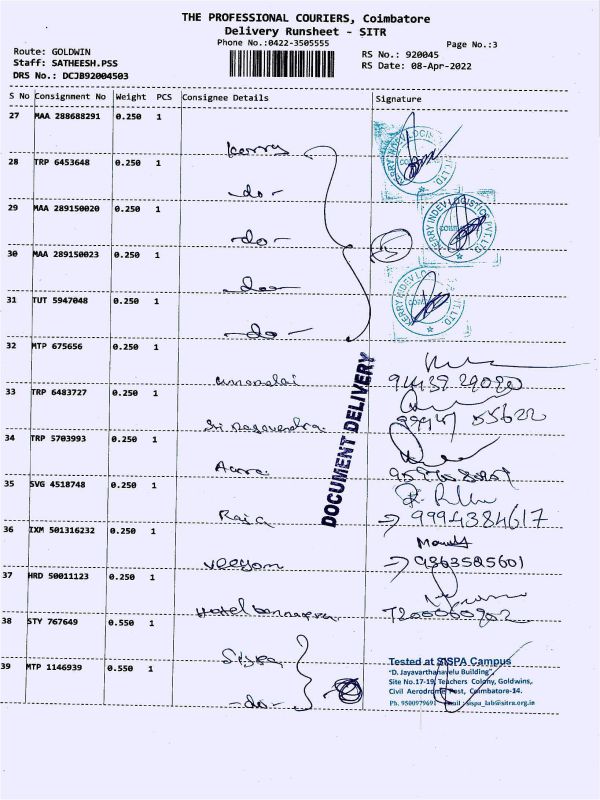 THE PROFESSIONAL COURIERS, Coimbatore
Delivery Runsheet - SITR
Phone No.:0422-3505555
Page No.:3
Route: GOLDWIN
Staff: SATHEESH.PSS
DRS No.: DCJB92004503
RS No.: 920045
RS Date: 08-Apr-2022
S No Consignment No Weight PCS Consignee Details Signature
27 MAA 288688291 0.250 1
Kerry
28 TRP 6453648 0.250 1
-do-
29 MAA 289150020 0.250 1
-do-
30 MAA 289150023 0.250 1
-do-
31 TUT 5947048 0.250 1
-do-
KERRY INDEV LOGISTICS PVT LTD
5
32 MTP 675656 0.250 1
33 TRP 6483727 0.250 1
34 TRP 5703993 0.250 1
35 SVG 4518748 0.250 1
Raja
9994384617
36 IXM 501316232 0.250 1
9363585601
37 HRD 50011123 0.250 1
Hotel
38 STY 767649 0.550 1
39 MTP 1146939 0.550 1
-do-
DOCUMENT DELIVERY
Tested at SISPA Campus
"D. Jayavarthanavelu Building",
Site No.17-19, Teachers Colony, Goldwins,
Civil Aerodrome Post, Coimbatore-14.
Ph. 9500979691 email : sispa_lab@sitra.org.in